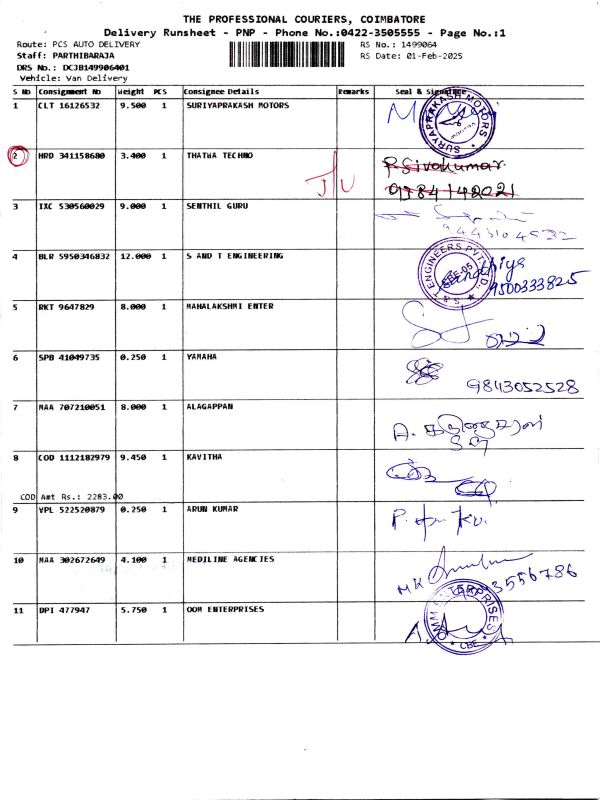 THE PROFESSIONAL COURIERS, COIMBATORE
Delivery Runsheet - PNP - Phone No.:0422-3505555 - Page No.:1
Route: PCS AUTO DELIVERY RS No.: 1499064
Staff: PARTHIBARAJA RS Date: 01-Feb-2025
DRS No.: DCJB149906401
Vehicle: Van Delivery
S No Consignment No Weight PCS Consignee Details Remarks Seal & Signature
1 CLT 16126532 9.500 1 SURIYAPRAKASH MOTORS
SURYAPRAKASH MOTORS
2 HRD 341158680 3.400 1 THATWA TECHNO P. Sivakumar
9384142021
3 IXC 530560029 9.000 1 SENTHIL GURU
4 BLR 5950346832 12.000 1 S AND T ENGINEERING
S & T ENGINEERS PVT. LTD.
CBE-05
9500333825
5 RKT 9647829 8.000 1 MAHALAKSHMI ENTER
6 SPB 41049735 0.250 1 YAMAHA
9843052528
7 MAA 707210051 8.000 1 ALAGAPPAN
8 COD 1112182979 9.450 1 KAVITHA
COD Amt Rs.: 2283.00
9 VPL 522520879 0.250 1 ARUN KUMAR
10 MAA 302672649 4.100 1 MEDILINE AGENCIES
11 DPI 477947 5.750 1 OOM ENTERPRISES
OMM ENTERPRISES
CBE